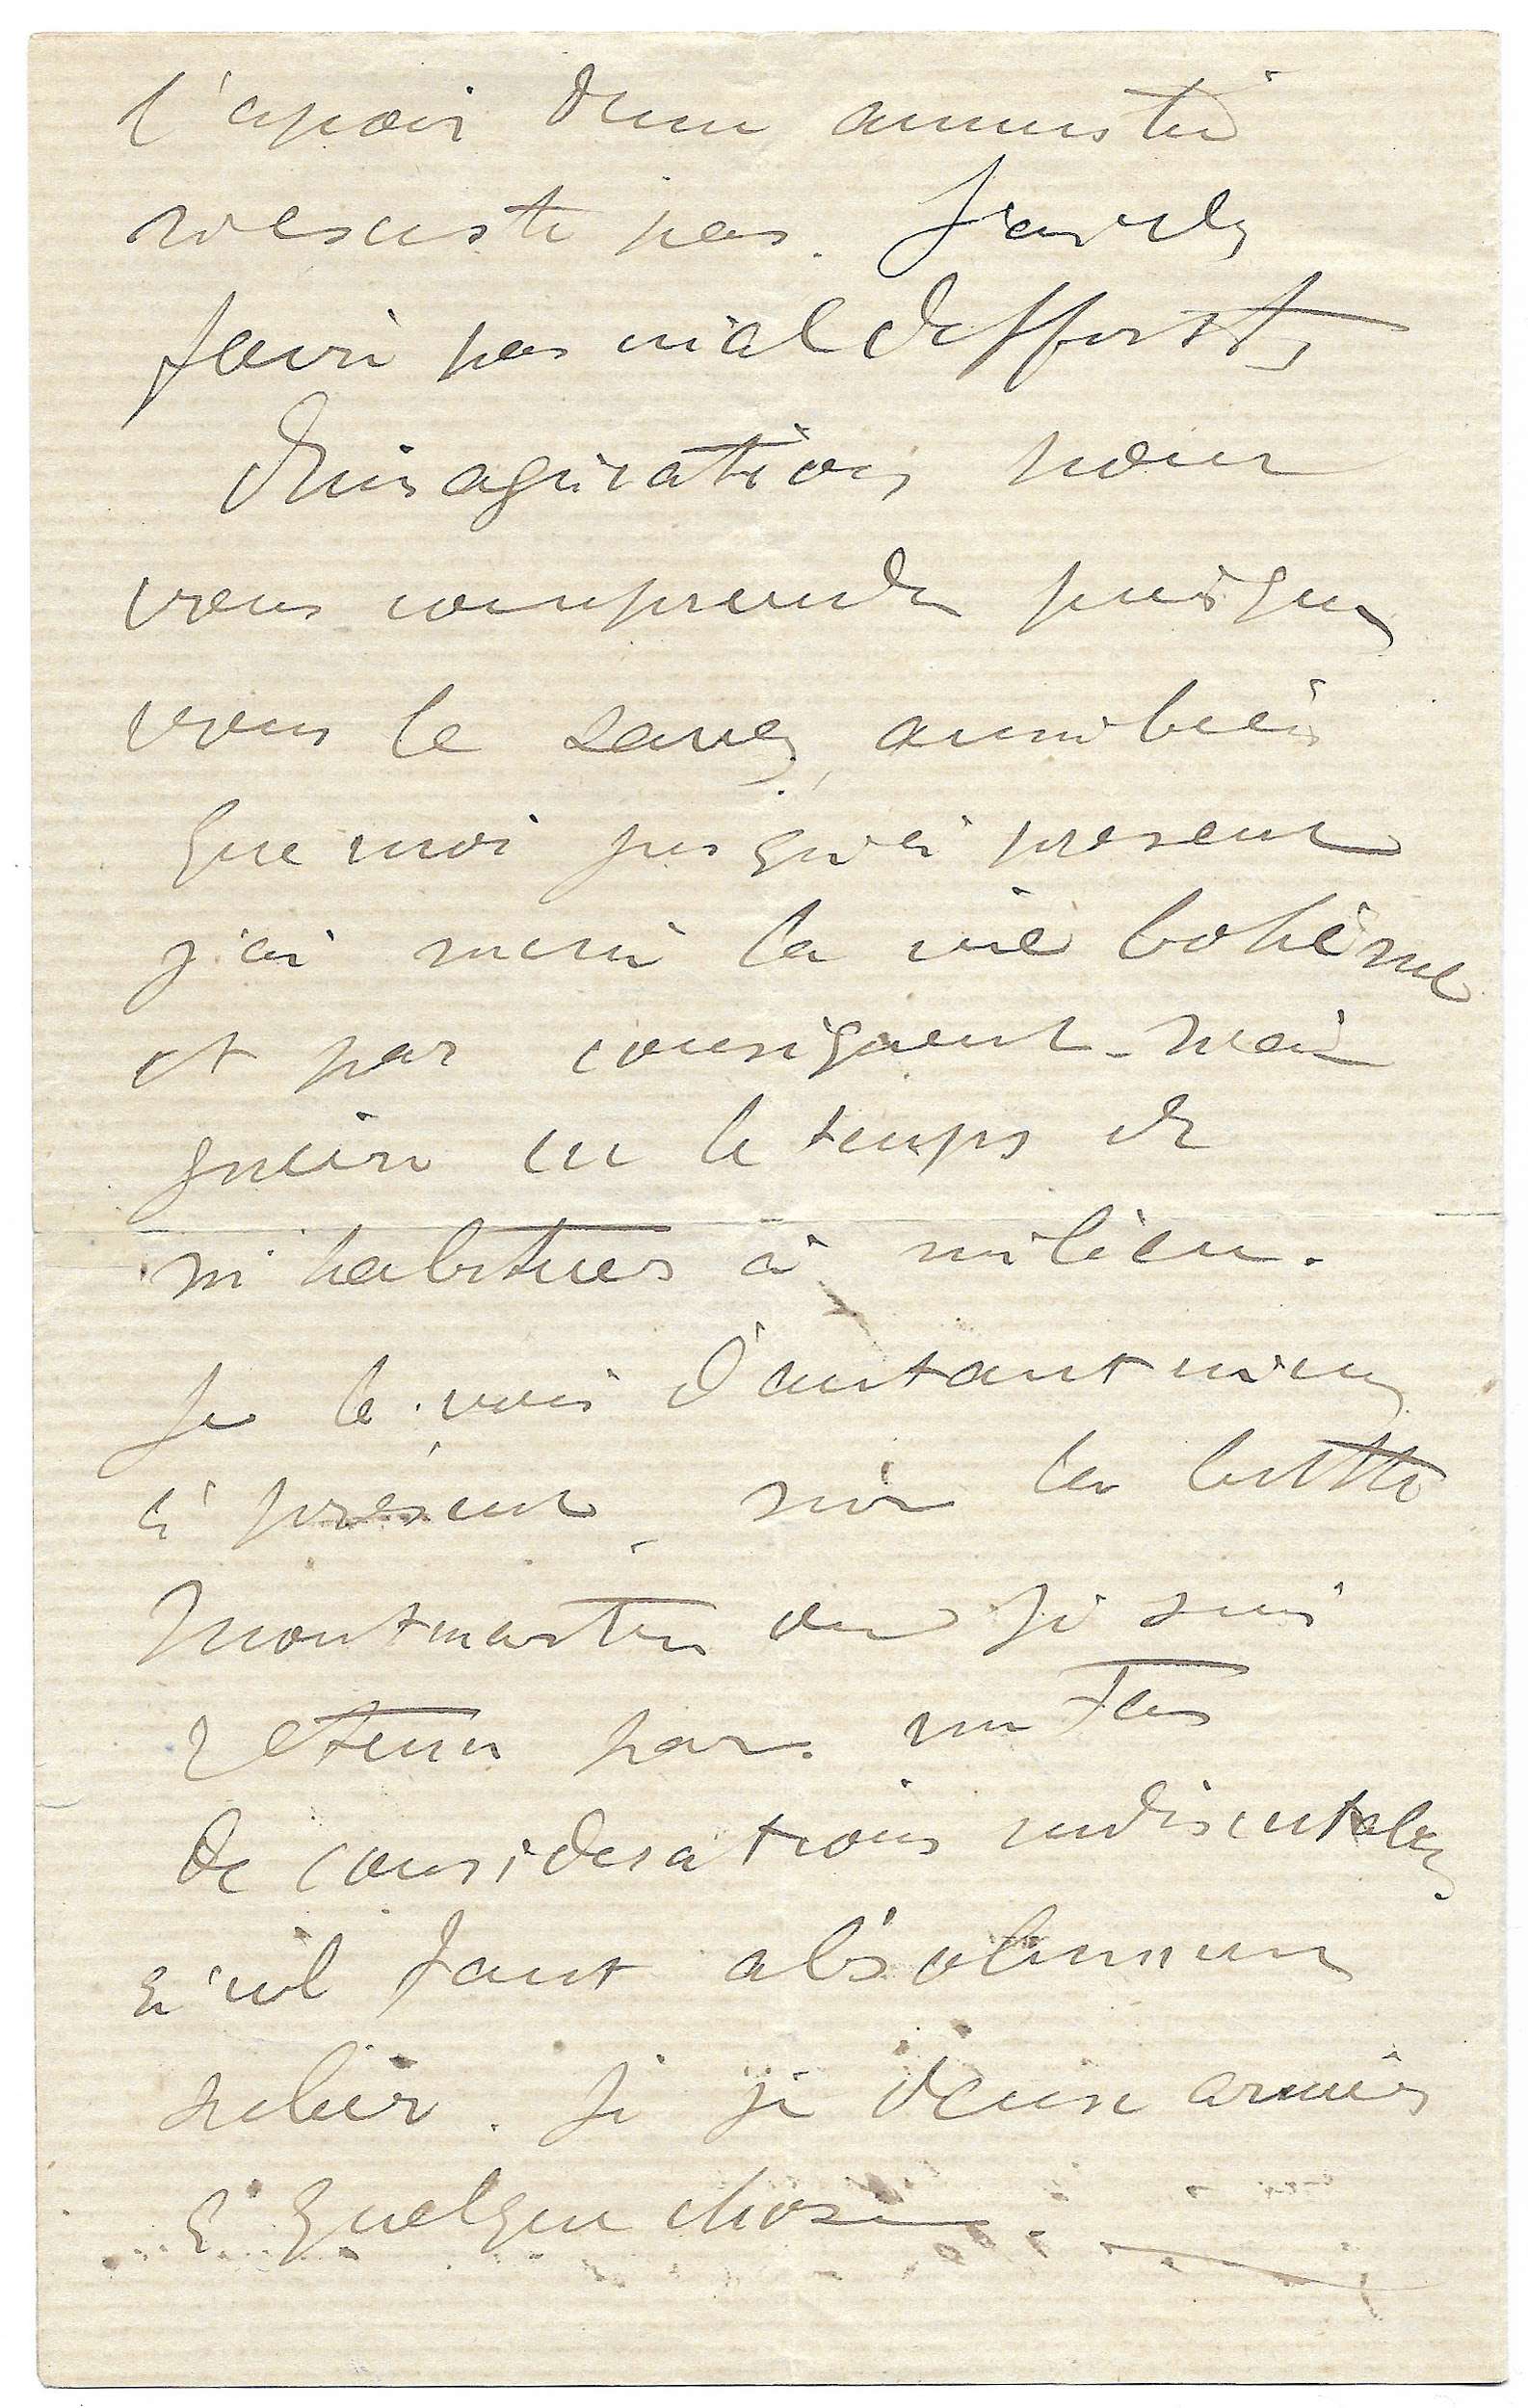 l'espoir d'une amnistie
n'existe pas. J'avais
faire pas mal d'efforts
d'imagination pour
vous comprendre puisque
vous le savez, aussi bien
que moi jusqu'à present
j'ai mené la vie bohème
et par consequent n'ai
guère eu le temps de
m'habituer à milieu.
Je le vois d'autant mieux
à présent, sur la butte
Montmartre où je suis
retenu par un tas
de considerations indiscutables
qu'il faut absolument
subir. Si je veux arriver
à quelque chose.